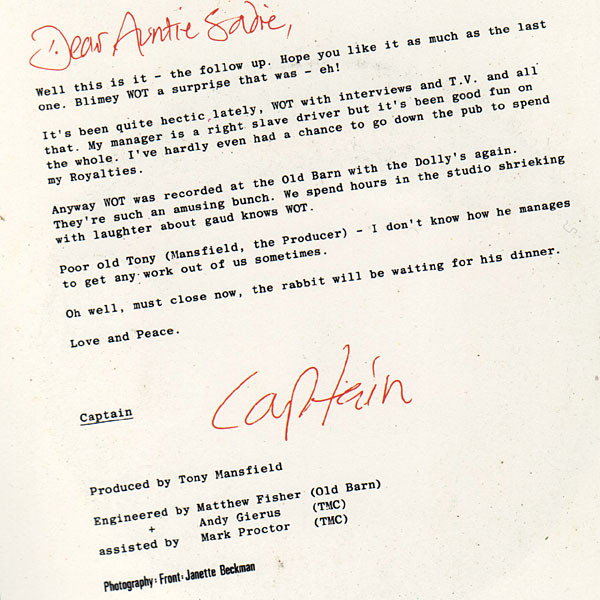 Dear Auntie Sadie,
Well this is it - the follow up. Hope you like it as much as the last
one. Blimey WOT a surprise that was - eh!
It's been quite hectic lately, WOT with interviews and T.V. and all
that. My manager is a right slave driver but it's been good fun on
the whole. I've hardly even had a chance to go down the pub to spend
my Royalties.
Anyway WOT was recorded at the Old Barn with the Dolly's again.
They're such an amusing bunch. We spend hours in the studio shrieking
with laughter about gaud knows WOT.
Poor old Tony (Mansfield, the Producer) - I don't know how he manages
to get any work out of us sometimes.
Oh well, must close now, the rabbit will be waiting for his dinner.
Love and Peace.
Captain
Captain
Produced by Tony Mansfield
Engineered by Matthew Fisher (Old Barn)
+ Andy Gierus (TMC)
assisted by Mark Proctor (TMC)
Photography: Front: Janette Beckman